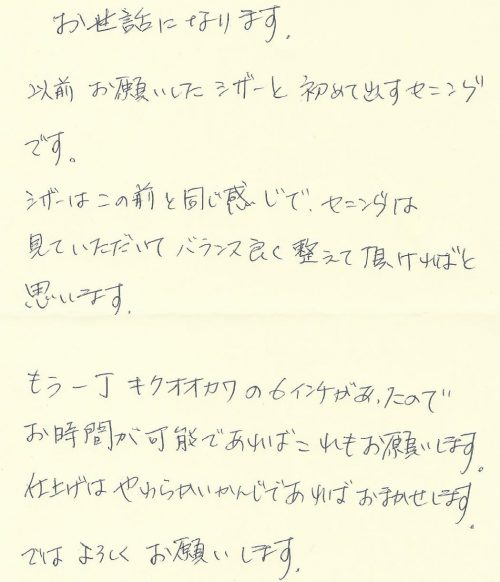 お世話になります.
以前 お願いした シザーと 初めて出すセニング
です。
シザーはこの前と同じ感じで、セニングは
見ていただいて バランス良く 整えて頂ければと
思います.
もう一丁 キクオオカワの6インチがあったので
お時間が可能であればこれもお願いします。
仕上げは やわらかいかんじであればおまかせします。
では よろしく お願いします.